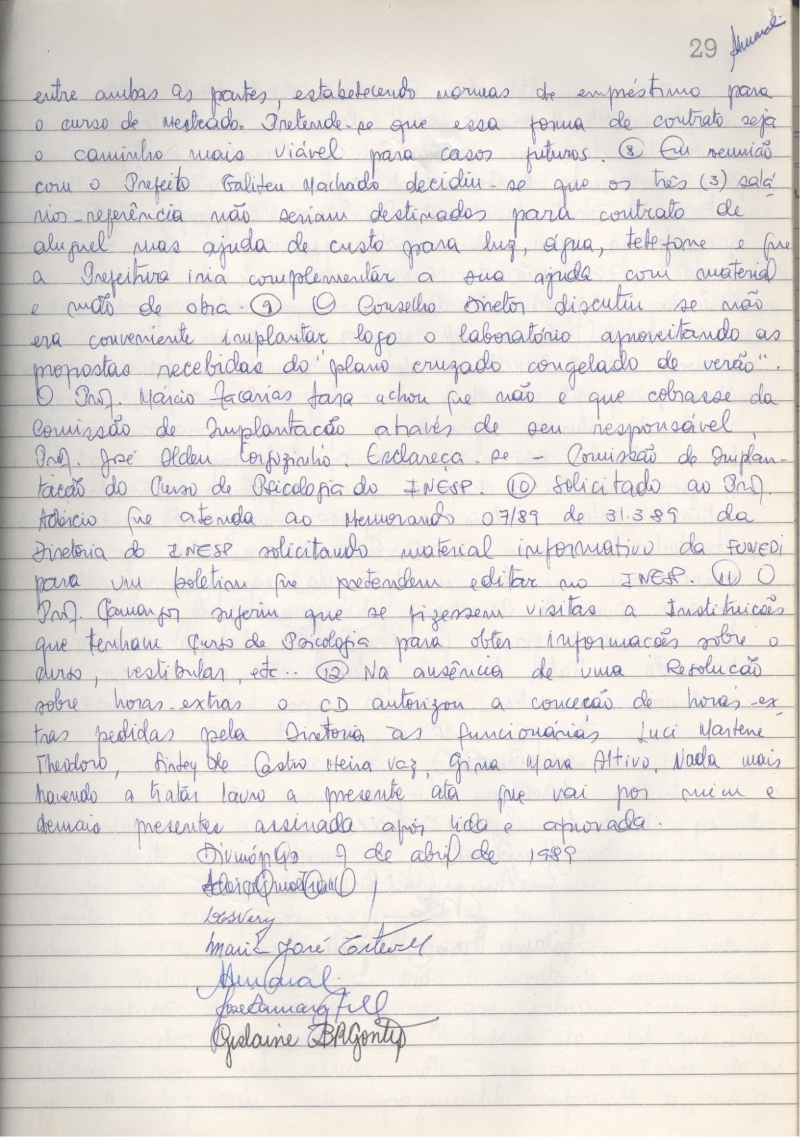 29
entre ambas as partes, estabelecendo normas de empréstimo para
o curso de mestrado. Pretende-se que essa forma de contrato seja
o caminho mais viável para casos futuros. (8) Em reunião
com o Prefeito Galileu Machado decidiu-se que os três (3) salá
rios-referência não seriam destinados para contrato de
aluguel mas ajuda de custo para luz, água, telefone e que
a Prefeitura iria complementar a sua ajuda com material
e mão de obra. (9) O Conselho Diretor discutiu se não
era conveniente implantar logo o laboratório aproveitando as
propostas recebidas do "plano cruzado congelado de verão".
O Prof. Márcio Zacarias Lara achou que não e que cobrasse da
Comissão de Implantacão através de seu responsável,
Prof. José Olden Corgozinho. Esclareça-se - Comissão de Implan-
tacão do Curso de Psicologia do INESP. (10) Solicitado ao Prof.
Adércio que atenda ao Memorando 07/89 de 31.3.89 da
Diretoria do INESP solicitando material informativo da FUNEDI
para um boletim que pretendem editar no INESP. (11) O
Prof. Camargos sugeriu que se fizessem visitas a Instituicões
que tenham Curso de Psicologia para obter informacões sobre o
curso, vestibular, etc... (12) Na ausência de uma Resolucão
sobre horas-extras o CD autorizou a conceção de horas-ex
tras pedidas pela Diretoria às funcionárias Luci Marlene
Theodoro, de Castro Meira Vaz, Gina Mara Altivo. Nada mais
havendo a tratar lavro a presente ata que vai por mim e
demais presentes assinada após lida e aprovada.
Divinópolis 9 de abril de 1989
Maria José
Gislaine